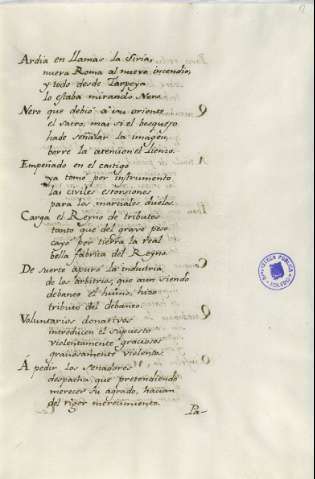 Ardia en llamas la Siria,
nueva Roma al nuevo incendio,
y todo desde Tarpeya
lo estaba mirando Nero.
Nero que debió a su oriente
el sacro, mas si el bosquejo
hade señalar la imagen,
borre la atencion el lienzo.
Empeñado en el castigo
ya tomó por instrumento
las civiles estorsiones
para los marciales duelos.
Carga el Reyno de tributos
tanto que del grave peso
cayó por tierra la real
bella fabrica del Reyno.
De suerte apura la industria
de los arbitrios, que aun siendo
debaneo el humo, hizo
tributo del debaneo.
Voluntarios donativos
introducen el supuesto
violentamente graciosos
graciosamente violentos.
Á pedir los Senadores
despacha, que pretendiendo
merecer su agrado, hacian
del rigor merecimiento.
Pa-
BIBLIOTECA PUBLICA
TOLEDO